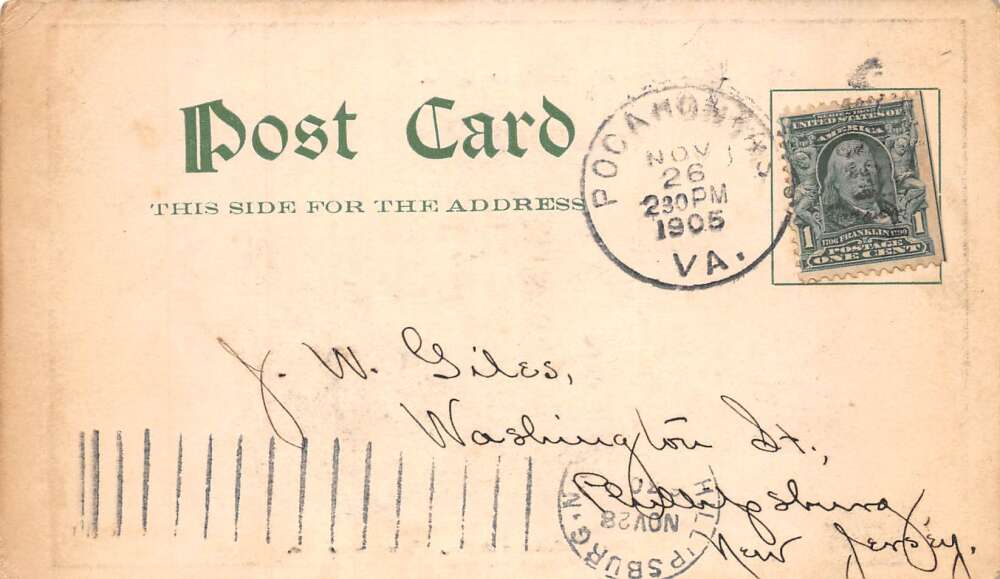 Post Card
THIS SIDE FOR THE ADDRESS
POCAHONTAS
NOV
26
230PM
1905
VA.
UNITED STATES OF
AMERICA
1706 FRANKLIN 1790
1 POSTAGE 1
ONE CENT
J. W. Giles,
Washington St.,
Phillipsburg
New Jersey.
NOV 28